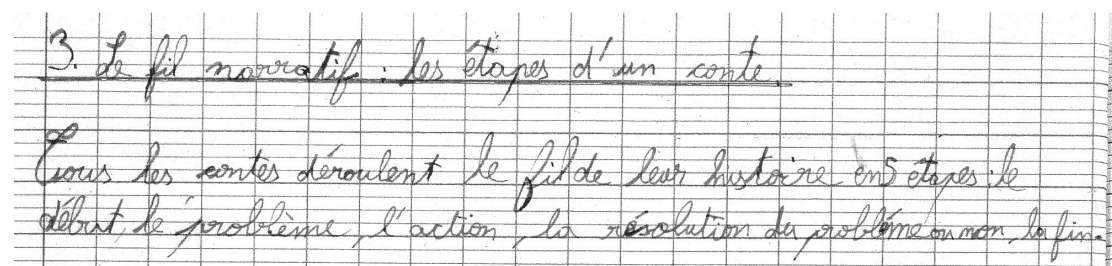 3. Le fil narratif : les étapes d'un conte
Tous les contes déroulent le fil de leur histoire en 5 étapes : le
début, le problème, l'action, la résolution du problème ou non, la fin.